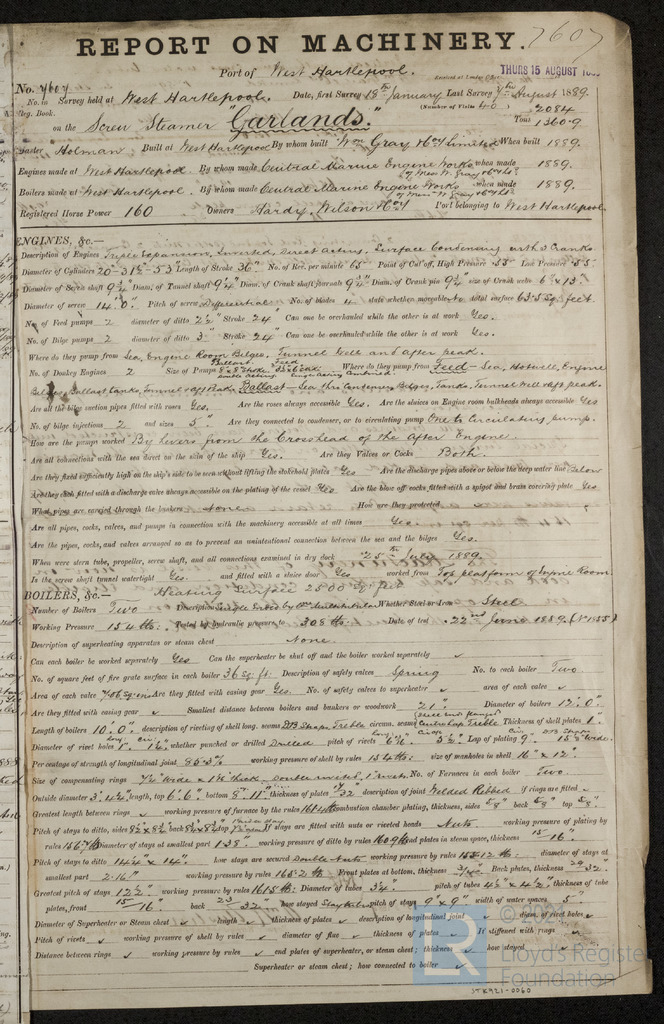 REPORT ON MACHINERY. 7607
Port of West Hartlepool. Received at London Office THURS 15 AUGUST
No. 7607
No. in Survey held at West Hartlepool. Date, first Survey 18th January Last Survey 7th August 1889.
Reg. Book. (Number of Visits 40)
on the Screw Steamer "Garlands." Tons 2084 1360.9
Master Holman Built at West Hartlepool By whom built Wm Gray & Coy Limited When built 1889.
Engines made at West Hartlepool By whom made Central Marine Engine Works when made 1889.
Boilers made at West Hartlepool. By whom made Central Marine Engine Works when made 1889.
Registered Horse Power 160 Owners Hardy, Wilson & Coy Port belonging to West Hartlepool
ENGINES, &c.—
Description of Engines Triple Expansion, Inverted, Direct Acting, Surface Condensing with 3 Cranks.
Diameter of Cylinders 20-31½-53 Length of Stroke 36" No. of Rev. per minute 65 Point of Cut off, High Pressure .55 Low Pressure .55
Diameter of Screw shaft 9¾" Diam. of Tunnel shaft 9¼" Diam. of Crank shaft journals 9¾" Diam. of Crank pin 9¾" size of Crank webs 6½ x 13"
Diameter of screw 14'.0" Pitch of screw Differential No. of blades 4 state whether moveable No total surface 63.5 sq. feet.
No. of Feed pumps 2 diameter of ditto 2½" Stroke 24" Can one be overhauled while the other is at work Yes.
No. of Bilge pumps 2 diameter of ditto 3" Stroke 24" Can one be overhauled while the other is at work Yes.
Where do they pump from Sea, Engine Room Bilges, Tunnel Well and after peak.
No. of Donkey Engines 2 Size of Pumps Ballast Feed Where do they pump from Feed - Sea, Hotwell, Engine
Bilges, Ballast tanks, Tunnel & aft Peak. Ballast - Sea thro Condenser, Bilges, Tanks, Tunnel Well & aft peak.
Are all the bilge suction pipes fitted with roses Yes. Are the roses always accessible Yes. Are the sluices on Engine room bulkheads always accessible Yes
No. of bilge injections 2 and sizes 5" Are they connected to condenser, or to circulating pump One to Circulating pump.
How are the pumps worked By levers from the Crosshead of the After Engine.
Are all connections with the sea direct on the skin of the ship Yes. Are they Valves or Cocks Both.
Are they fixed sufficiently high on the ship's side to be seen without lifting the stokehold plates Yes Are the discharge pipes above or below the deep water line Below
Are they each fitted with a discharge valve always accessible on the plating of the vessel Yes Are the blow off cocks fitted with a spigot and brass covering plate Yes
What pipes are carried through the bunkers None How are they protected ✓
Are all pipes, cocks, valves, and pumps in connection with the machinery accessible at all times Yes.
Are the pipes, cocks, and valves arranged so as to prevent an unintentional connection between the sea and the bilges Yes.
When were stern tube, propeller, screw shaft, and all connections examined in dry dock 25th July 1889.
Is the screw shaft tunnel watertight Yes. and fitted with a sluice door Yes worked from Top platform of Engine Room.
BOILERS, &c.— Heating Surface 2500 sq. feet
Number of Boilers Two Description Whether Steel or Iron Steel
Working Pressure 154 lbs. Tested by hydraulic pressure to 308 lbs Date of test 22nd June 1889.
Description of superheating apparatus or steam chest None.
Can each boiler be worked separately Yes Can the superheater be shut off and the boiler worked separately ✓
No. of square feet of fire grate surface in each boiler 36 sq. ft. Description of safety valves Spring No. to each boiler Two
Area of each valve Are they fitted with easing gear Yes. No. of safety valves to superheater ✓ area of each valve ✓
Are they fitted with easing gear ✓ Smallest distance between boilers and bunkers or woodwork 21" Diameter of boilers 12'.0"
Length of boilers 10'.0" description of riveting of shell long. seams DB Straps Treble circum. seams Thickness of shell plates 1"
Diameter of rivet holes whether punched or drilled Drilled pitch of rivets Lap of plating
Percentage of strength of longitudinal joint 85.3% working pressure of shell by rules 154 lbs. size of manholes in shell 16" x 12".
Size of compensating rings No. of Furnaces in each boiler Two.
Outside diameter 3'.4½" length, top 6'.6" bottom 8'.11" thickness of plates description of joint Welded Ribbed if rings are fitted ✓
Greatest length between rings ✓ working pressure of furnace by the rules combustion chamber plating, thickness, sides 5/8" back 5/8" top 5/8".
Pitch of stays to ditto, sides back top If stays are fitted with nuts or riveted heads Nuts. working pressure of plating by
rules Diameter of stays at smallest part 1.38" working pressure of ditto by rules End plates in steam space, thickness 15/16".
Pitch of stays to ditto 14¼" x 14". how stays are secured Double Nuts working pressure by rules diameter of stays at
smallest part 2.16" working pressure by rules Front plates at bottom, thickness Back plates, thickness
Greatest pitch of stays 12½" working pressure by rules Diameter of tubes 3¼" pitch of tubes 4½" x 4½", thickness of tube
plates, front 15/16" back 23/32" how stayed Stay tubes pitch of stays 9" x 9". width of water spaces 5"
Diameter of Superheater or Steam chest ✓ length ✓ thickness of plates ✓ description of longitudinal joint ✓ diam. of rivet holes ✓
Pitch of rivets ✓ working pressure of shell by rules ✓ diameter of flue ✓ thickness of plates ✓ If stiffened with rings ✓
Distance between rings ✓ working pressure by rules ✓ end plates of superheater, or steam chest; thickness ✓ how stayed ✓
Superheater or steam chest; how connected to boiler ✓
Lloyd's Register
Foundation
STK921-0060